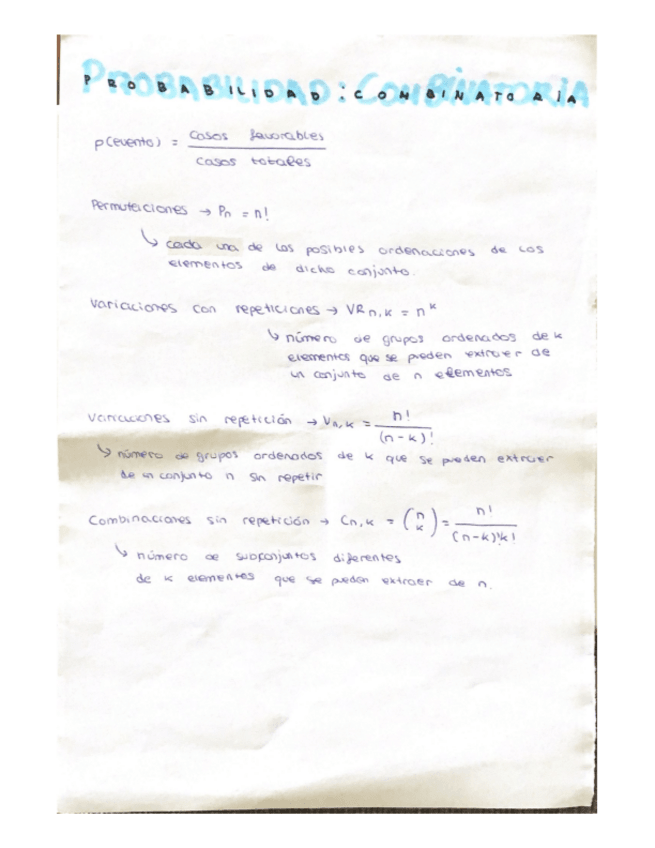 PROBABILIDAD: COMBINATORIA
p(evento) = casos favorables / casos totales
Permutaciones → Pn = n!
↳ cada una de las posibles ordenaciones de los
elementos de dicho conjunto.
Variaciones con repeticiones → VR n,k = n^k
↳ número de grupos ordenados de k
elementos que se pueden extraer de
un conjunto de n elementos
Variaciones sin repetición → Vn,k = n! / (n-k)!
↳ número de grupos ordenados de k que se pueden extraer
de un conjunto n sin repetir
Combinaciones sin repetición → Cn,k = (n k) = n! / (n-k)!k!
↳ número de subconjuntos diferentes
de k elementos que se pueden extraer de n.